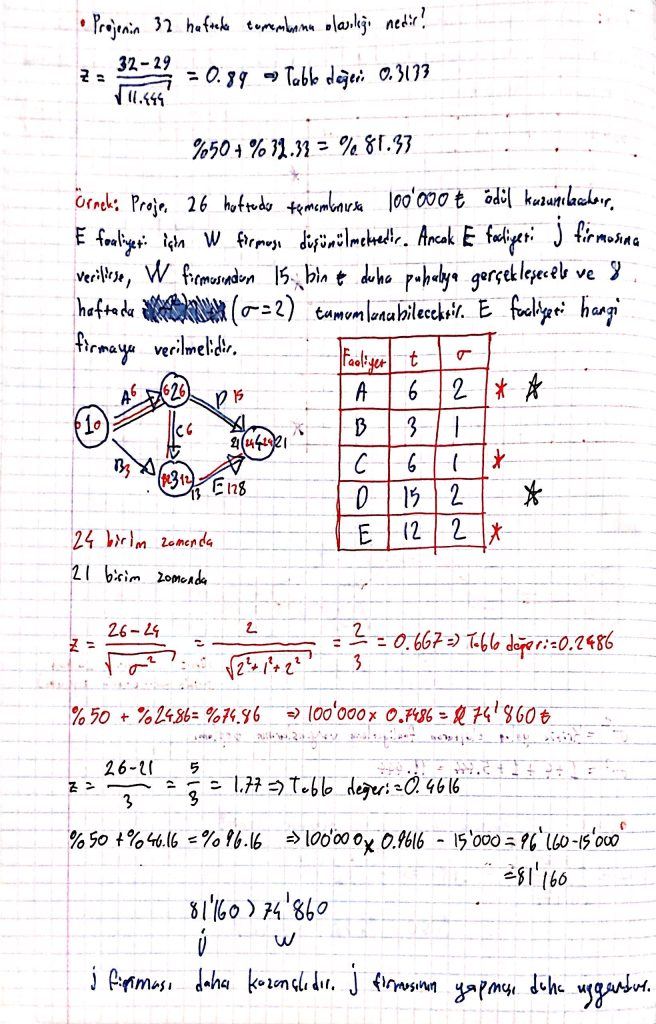 • Projenin 32 haftada tamamlanma olasılığı nedir?
z = 32-29 / √11.444 = 0.89 ⇒ Tablo değeri 0.3133
%50 + %32.33 = %81.33
Örnek: Proje, 26 haftada tamamlanırsa 100'000 ₺ ödül kazanılacaktır.
E faaliyeti için W firması düşünülmektedir. Ancak E faaliyeti j firmasına
verilirse, W firmasından 15 bin ₺ daha pahalıya gerçekleşecek ve 8
haftada (σ=2) tamamlanabilecektir. E faaliyeti hangi
firmaya verilmelidir.
Faaliyet t σ
A 6 2 * ☆
B 3 1
C 6 1 *
D 15 2 ☆
E 12 2 *
0 1 0
A6
6 2 6
D 15
C6
B3
12 3 12
13
E 12 8
21 24 4 24 21
24 birim zamanda
21 birim zamanda
z = 26-24 / √σ² = 2 / √2²+1²+2² = 2/3 = 0.667 ⇒ Tablo değeri:=0.2486
%50 + %24.86 = %74.86 ⇒ 100'000 x 0.7486 = 74'860 ₺
z = 26-21 / 3 = 5/3 = 1.77 ⇒ Tablo değeri:=0.4616
%50 + %46.16 = %96.16 ⇒ 100'000 x 0.9616 - 15'000 = 96'160-15'000
=81'160
81'160 > 74'860
j W
j firması daha kazançlıdır. j firmasının yapması daha uygundur.